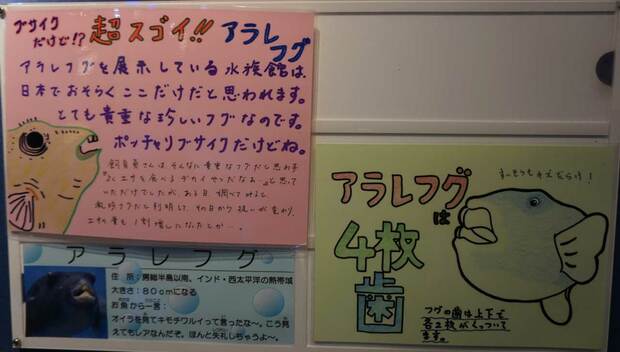 ブサイク
だけど!?
超スゴイ!!
アラレ
フグ
アラレフグを展示している水族館は、
日本でおそらくここだけだと思われます。
とても貴重な珍しいフグなのです。
ポッチャリブサイクだけどね。
飼育員さんは、そんなに貴重なフグだと思わず
エサを食べるデカイやつだなぁ…と思って
いただけでしたが、ある日調べてみると
フグだと判明して、その日から扱いが変わり、
エサの量も1割増しになったとか…。
アラレフグ
住 所:房総半島以南、インド・西太平洋の熱帯域
大きさ:80cmになる
お魚から一言:
オイラを見てキモチワルイって言ったな~。こう見
えてもレアなんだぞ。ほんと失礼しちゃうよ~。
アラレフグ
は
4枚
歯
フグの歯は上下で
各2枚がくっついて
ます。